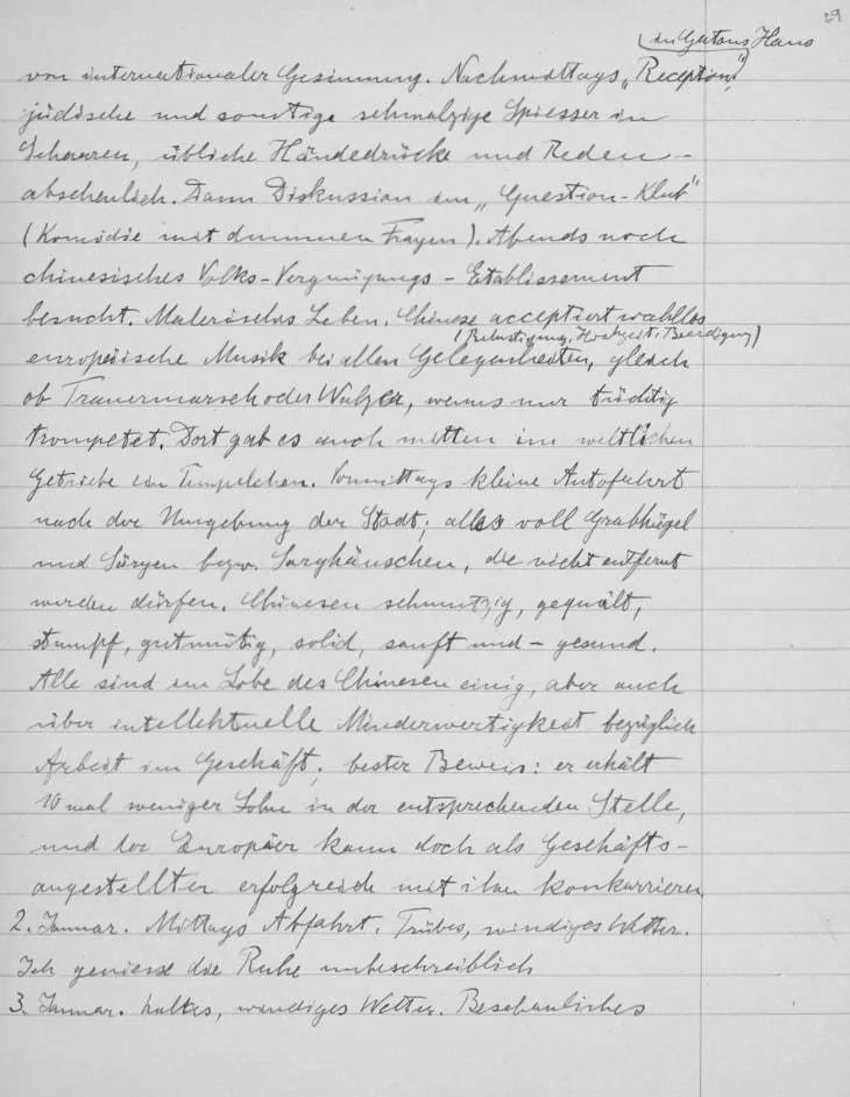 29
in Gatons Haus
von internationaler Gesinnung. Nachmittags „Reception“,
jüdische und sonstige schmalzige Spiesser in
Scharen, übliche Händedrücke und Reden –
abscheulich. Dann Diskussion im „Question-Klub“
(Komödie mit dummen Fragen). Abends noch
chinesisches Volks-Vergnügungs-Etablissement
besucht. Malerisches Leben. Chinese acceptiert wahllos
(Belustigung, Hochzeit, Beerdigung)
europäische Musik bei allen Gelegenheiten, gleich
ob Trauermarsch oder Walzer, wenns nur tüchtig
trompetet. Dort gab es auch mitten im weltlichen
Getriebe ein Tempelchen. Vormittags kleine Autofahrt
nach der Umgebung der Stadt; alles voll Grabhügel
und Särgen bezw. Sarghäuschen, die nicht entfernt
werden dürfen. Chinesen schmutzig, gequält,
stumpf, gutmütig, solid, sanft und – gesund.
Alle sind im Lobe des Chinesen einig, aber auch
über intellektuelle Minderwertigkeit bezüglich
Arbeit im Geschäft; bester Beweis: er erhält
10 mal weniger Lohn in der entsprechenden Stelle,
und der Europäer kann doch als Geschäfts-
angestellter erfolgreich mit ihm konkurrieren
2. Januar. Mittags Abfahrt. Trübes, windiges Wetter.
Ich geniesse die Ruhe unbeschreiblich
3. Januar. kaltes, windiges Wetter. Beschauliches